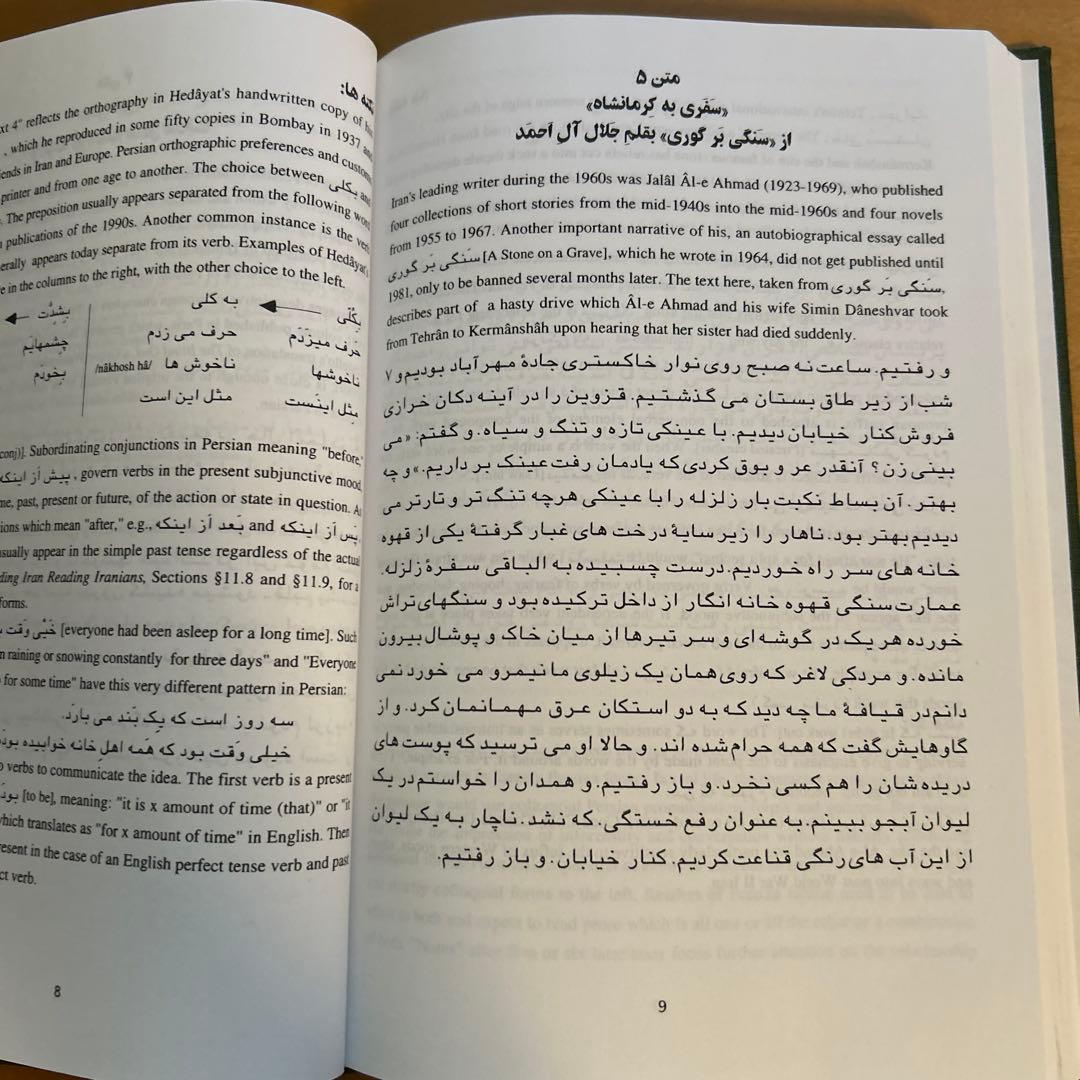 نکته ها:
xt 4" reflects the orthography in Hedâyat's handwritten copy of his
, which he reproduced in some fifty copies in Bombay in 1937 and
ends in Iran and Europe. Persian orthographic preferences and custom
printer and from one age to another. The choice between بکلی and
. The preposition usually appears separated from the following word
publications of the 1990s. Another common instance is the verb
erally appears today separate from its verb. Examples of Hedâyat's
e in the columns to the right, with the other choice to the left.
بِکُلّی به کلی بِشِدَّت
حَرف میزَدَم حرف می زدم چِشمهایَم
ناخوشها ناخوش ها /nâkhosh hâ/ بِخودَم
مِثل اینَست مثل این است
conj)]. Subordinating conjunctions in Persian meaning "before,"
پیش اَز اینکه , govern verbs in the present subjunctive mood
me, past, present or future, of the action or state in question. As
ions which mean "after," e.g., بَعد اَز اینکه and پَس اَز اینکه
usually appear in the simple past tense regardless of the actual
ding Iran Reading Iranians, Sections §11.8 and §11.9, for a
forms.
خَیْلی وَقت [everyone had been asleep for a long time]. Such
n raining or snowing constantly for three days" and "Everyone
for some time" have this very different pattern in Persian:
سه روز است که یِک بَند می بارَد.
خیلی وَقت بود که هَمه اهلِ خانه خوابیده بودَ
o verbs to communicate the idea. The first verb is a present
بودَ [to be], meaning: "it is x amount of time (that)" or "it
which translates as "for x amount of time" in English. Then
resent in the case of an English perfect tense verb and past
ct verb.
8
متن ۵
«سَفَری به کِرمانشاه»
از «سَنگی بَر گوری» بقلمِ جَلال آلِ اَحمَد
Iran's leading writer during the 1960s was Jalâl Âl-e Ahmad (1923-1969), who published
four collections of short stories from the mid-1940s into the mid-1960s and four novels
from 1955 to 1967. Another important narrative of his, an autobiographical essay called
سَنگی بَر گوری [A Stone on a Grave], which he wrote in 1964, did not get published until
1981, only to be banned several months later. The text here, taken from سَنگی بَر گوری,
describes part of a hasty drive which Âl-e Ahmad and his wife Simin Dâneshvar took
from Tehrân to Kermânshâh upon hearing that her sister had died suddenly.
و رفتیم. ساعت نه صبح روی نوار خاکستری جادهٔ مهرآباد بودیم و ۷
شب از زیر طاق بستان می گذشتیم. قزوین را در آینه دکان خرازی
فروش کنار خیابان دیدیم. با عینکی تازه و تنگ و سیاه. و گفتم: «می
بینی زن؟ آنقدر عر و بوق کردی که یادمان رفت عینک بر داریم.» و چه
بهتر. آن بساط نکبت بار زلزله را با عینکی هرچه تنگ تر و تارتر می
دیدیم بهتر بود. ناهار را زیر سایهٔ درخت های غبار گرفتهٔ یکی از قهوه
خانه های سر راه خوردیم. درست چسبیده به الباقی سفرهٔ زلزله.
عمارت سنگی قهوه خانه انگار از داخل ترکیده بود و سنگهای تراش
خورده هر یک در گوشه ای و سر تیرها از میان خاک و پوشال بیرون
مانده. و مردکی لاغر که روی همان یک زیلوی ما نیمرو می خورد نمی
دانم در قیافهٔ ما چه دید که به دو استکان عرق مهمانمان کرد. و از
گاوهایش گفت که همه حرام شده اند. و حالا او می ترسید که پوست های
دریده شان را هم کسی نخرد. و باز رفتیم. و همدان را خواستم در یک
لیوان آبجو ببینم. به عنوان رفع خستگی. که نشد. ناچار به یک لیوان
از این آب های رنگی قناعت کردیم. کنار خیابان. و باز رفتیم.
9